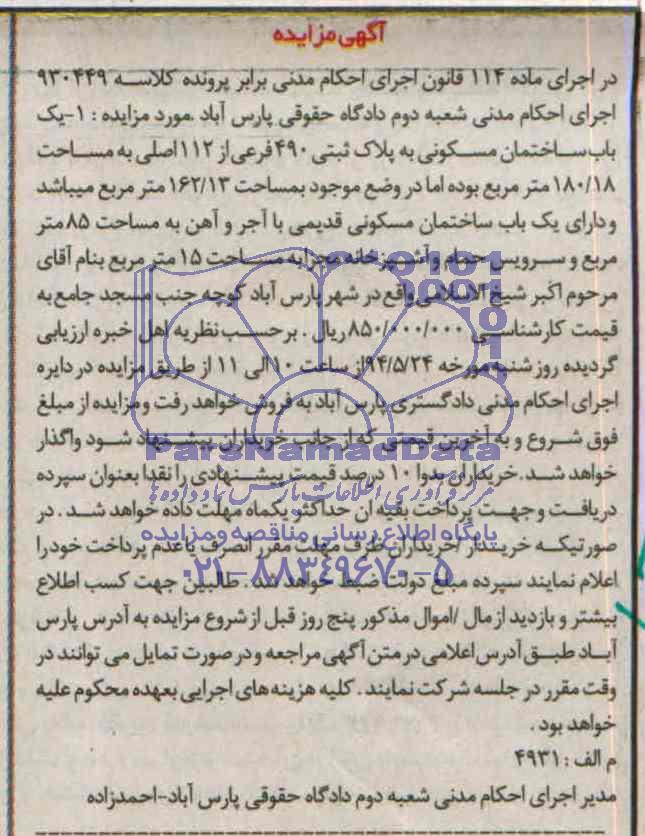 آگهی مزایده
در اجرای ماده ۱۱۴ قانون اجرای احکام مدنی برابر پرونده کلاسه ۹۳۰۴۴۹
اجرای احکام مدنی شعبه دوم دادگاه حقوقی پارس آباد .مورد مزایده : ۱-یک
باب ساختمان مسکونی به پلاک ثبتی ۴۹۰ فرعی از ۱۱۲ اصلی به مساحت
۱۸۰/۱۸ متر مربع بوده اما در وضع موجود بمساحت ۱۶۲/۱۳ متر مربع میباشد
و دارای یک باب ساختمان مسکونی قدیمی با آجر و آهن به مساحت ۸۵ متر
مربع و سرویس حمام و آشپزخانه مجزا به مساحت ۱۵ متر مربع بنام آقای
مرحوم اکبر شیخ الاسلامی واقع در شهر پارس آباد کوچه جنب مسجد جامع به
قیمت کارشناسی ۸۵۰/۰۰۰/۰۰۰ ریال . برحسب نظریه اهل خبره ارزیابی
گردیده روز شنبه مورخه ۹۴/۵/۲۴ از ساعت ۱۰ الی ۱۱ از طریق مزایده در دایره
اجرای احکام مدنی دادگستری پارس آباد به فروش خواهد رفت و مزایده از مبلغ
فوق شروع و به آخرین قیمتی که از جانب خریداران پیشنهاد شود واگذار
خواهد شد.خریداران بدوا ۱۰ درصد قیمت پیشنهادی را نقدا بعنوان سپرده
دریافت و جهت پرداخت بقیه آن حداکثر یکماه مهلت داده خواهد شد . در
صورتیکه خریدار /خریداران ظرف مهلت مقرر انصرف یا عدم پرداخت خود را
اعلام نمایند سپرده مبلغ دولت ضبط خواهد شد . طالبین جهت کسب اطلاع
بیشتر و بازدید از مال /اموال مذکور پنج روز قبل از شروع مزایده به آدرس پارس
آباد طبق آدرس اعلامی در متن آگهی مراجعه و در صورت تمایل می توانند در
وقت مقرر در جلسه شرکت نمایند . کلیه هزینه های اجرایی بعهده محکوم علیه
خواهد بود .
م الف : ۴۹۳۱
مدیر اجرای احکام مدنی شعبه دوم دادگاه حقوقی پارس آباد-احمدزاده
ParsNamadData
مرکز فرآوری اطلاعات پارس نماد داده ها
پایگاه اطلاع رسانی مناقصه و مزایده
۰۲۱-۸۸۳۴۹۶۷۰-۵